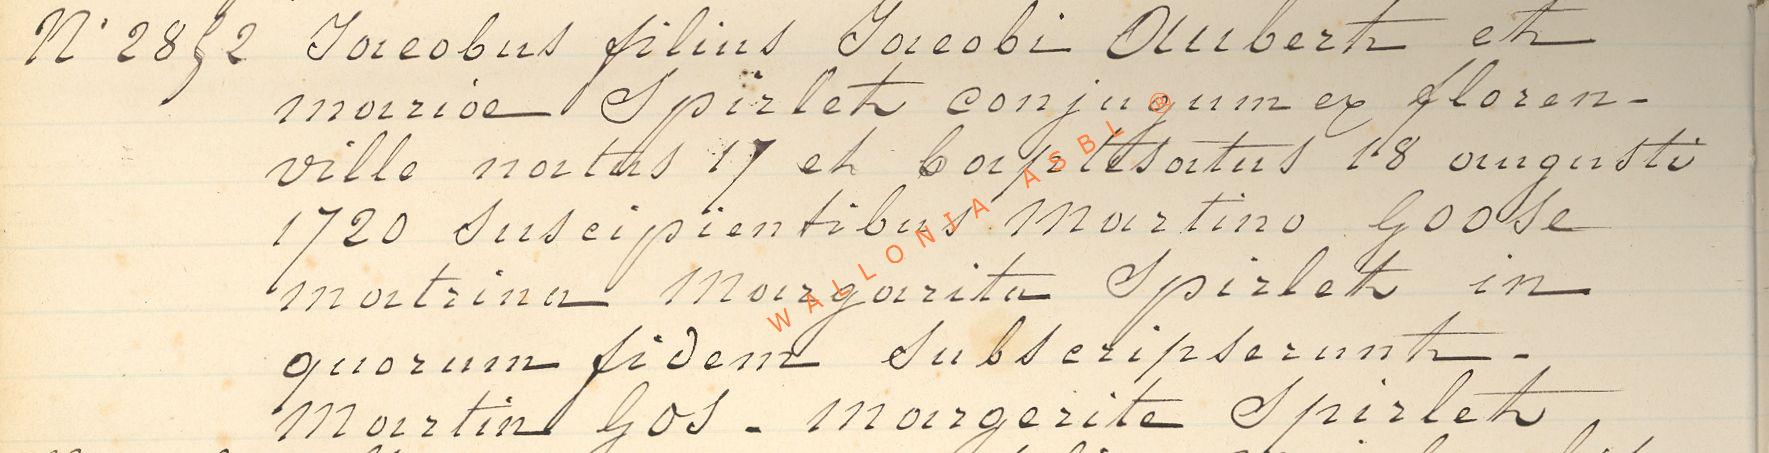 N° 2852 Jacobus filius Jacobi Aubert et
mariae Spirlet conjugum ex floren-
ville natus 17 et baptesatus 18 augusti
1720 Suscipientibus Martino Goose
matrina Margarita Spirlet in
quorum fidem Subscripserunt -
Martin Gos - margerite Spirlet
WALLONIA ASBL ®